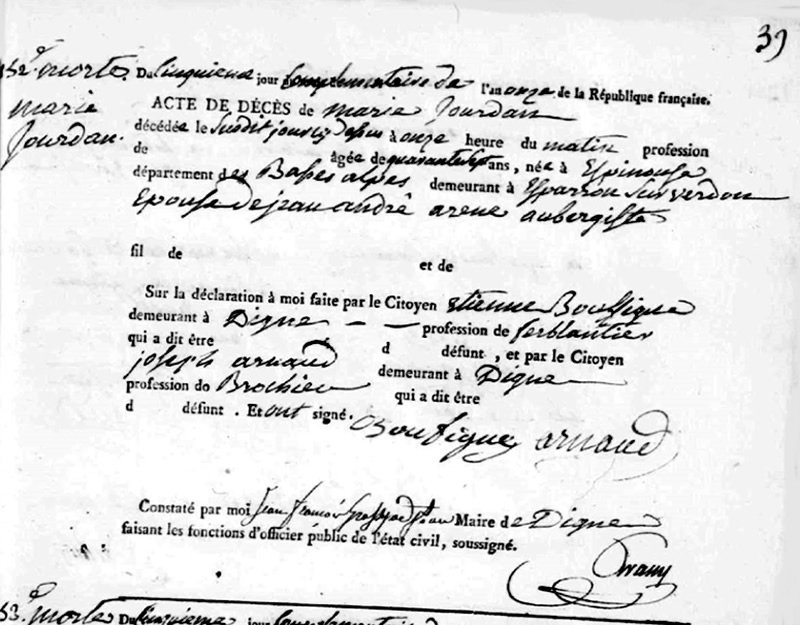 39
132.e morte
marie
Jourdan.
Du Cinquieme jour Complementaire de l'an onze de la République française.
ACTE DE DÉCÈS de marie Jourdan
décédée le Susdit jour à onze heure du matin profession
de âgée de quarante ans, née à Espinouse
département des Basses alpes, demeurant à Esparron Sur verdon
Epouse de jean andré arene aubergiste
fil de et de
Sur la déclaration à moi faite par le Citoyen Etienne Bousfigue
demeurant à Digne — — profession de ferblantier
qui a dit être d défunt , et par le Citoyen
joseph arnaud demeurant à Digne
profession de Brochieu qui a dit être
d défunt . Et ont signé. Bousfigue arnaud
Constaté par moi Jean François Maire de Digne
faisant les fonctions d'officier public de l'état civil, soussigné.
53.e morte Du Cinquieme jour Complementaire d